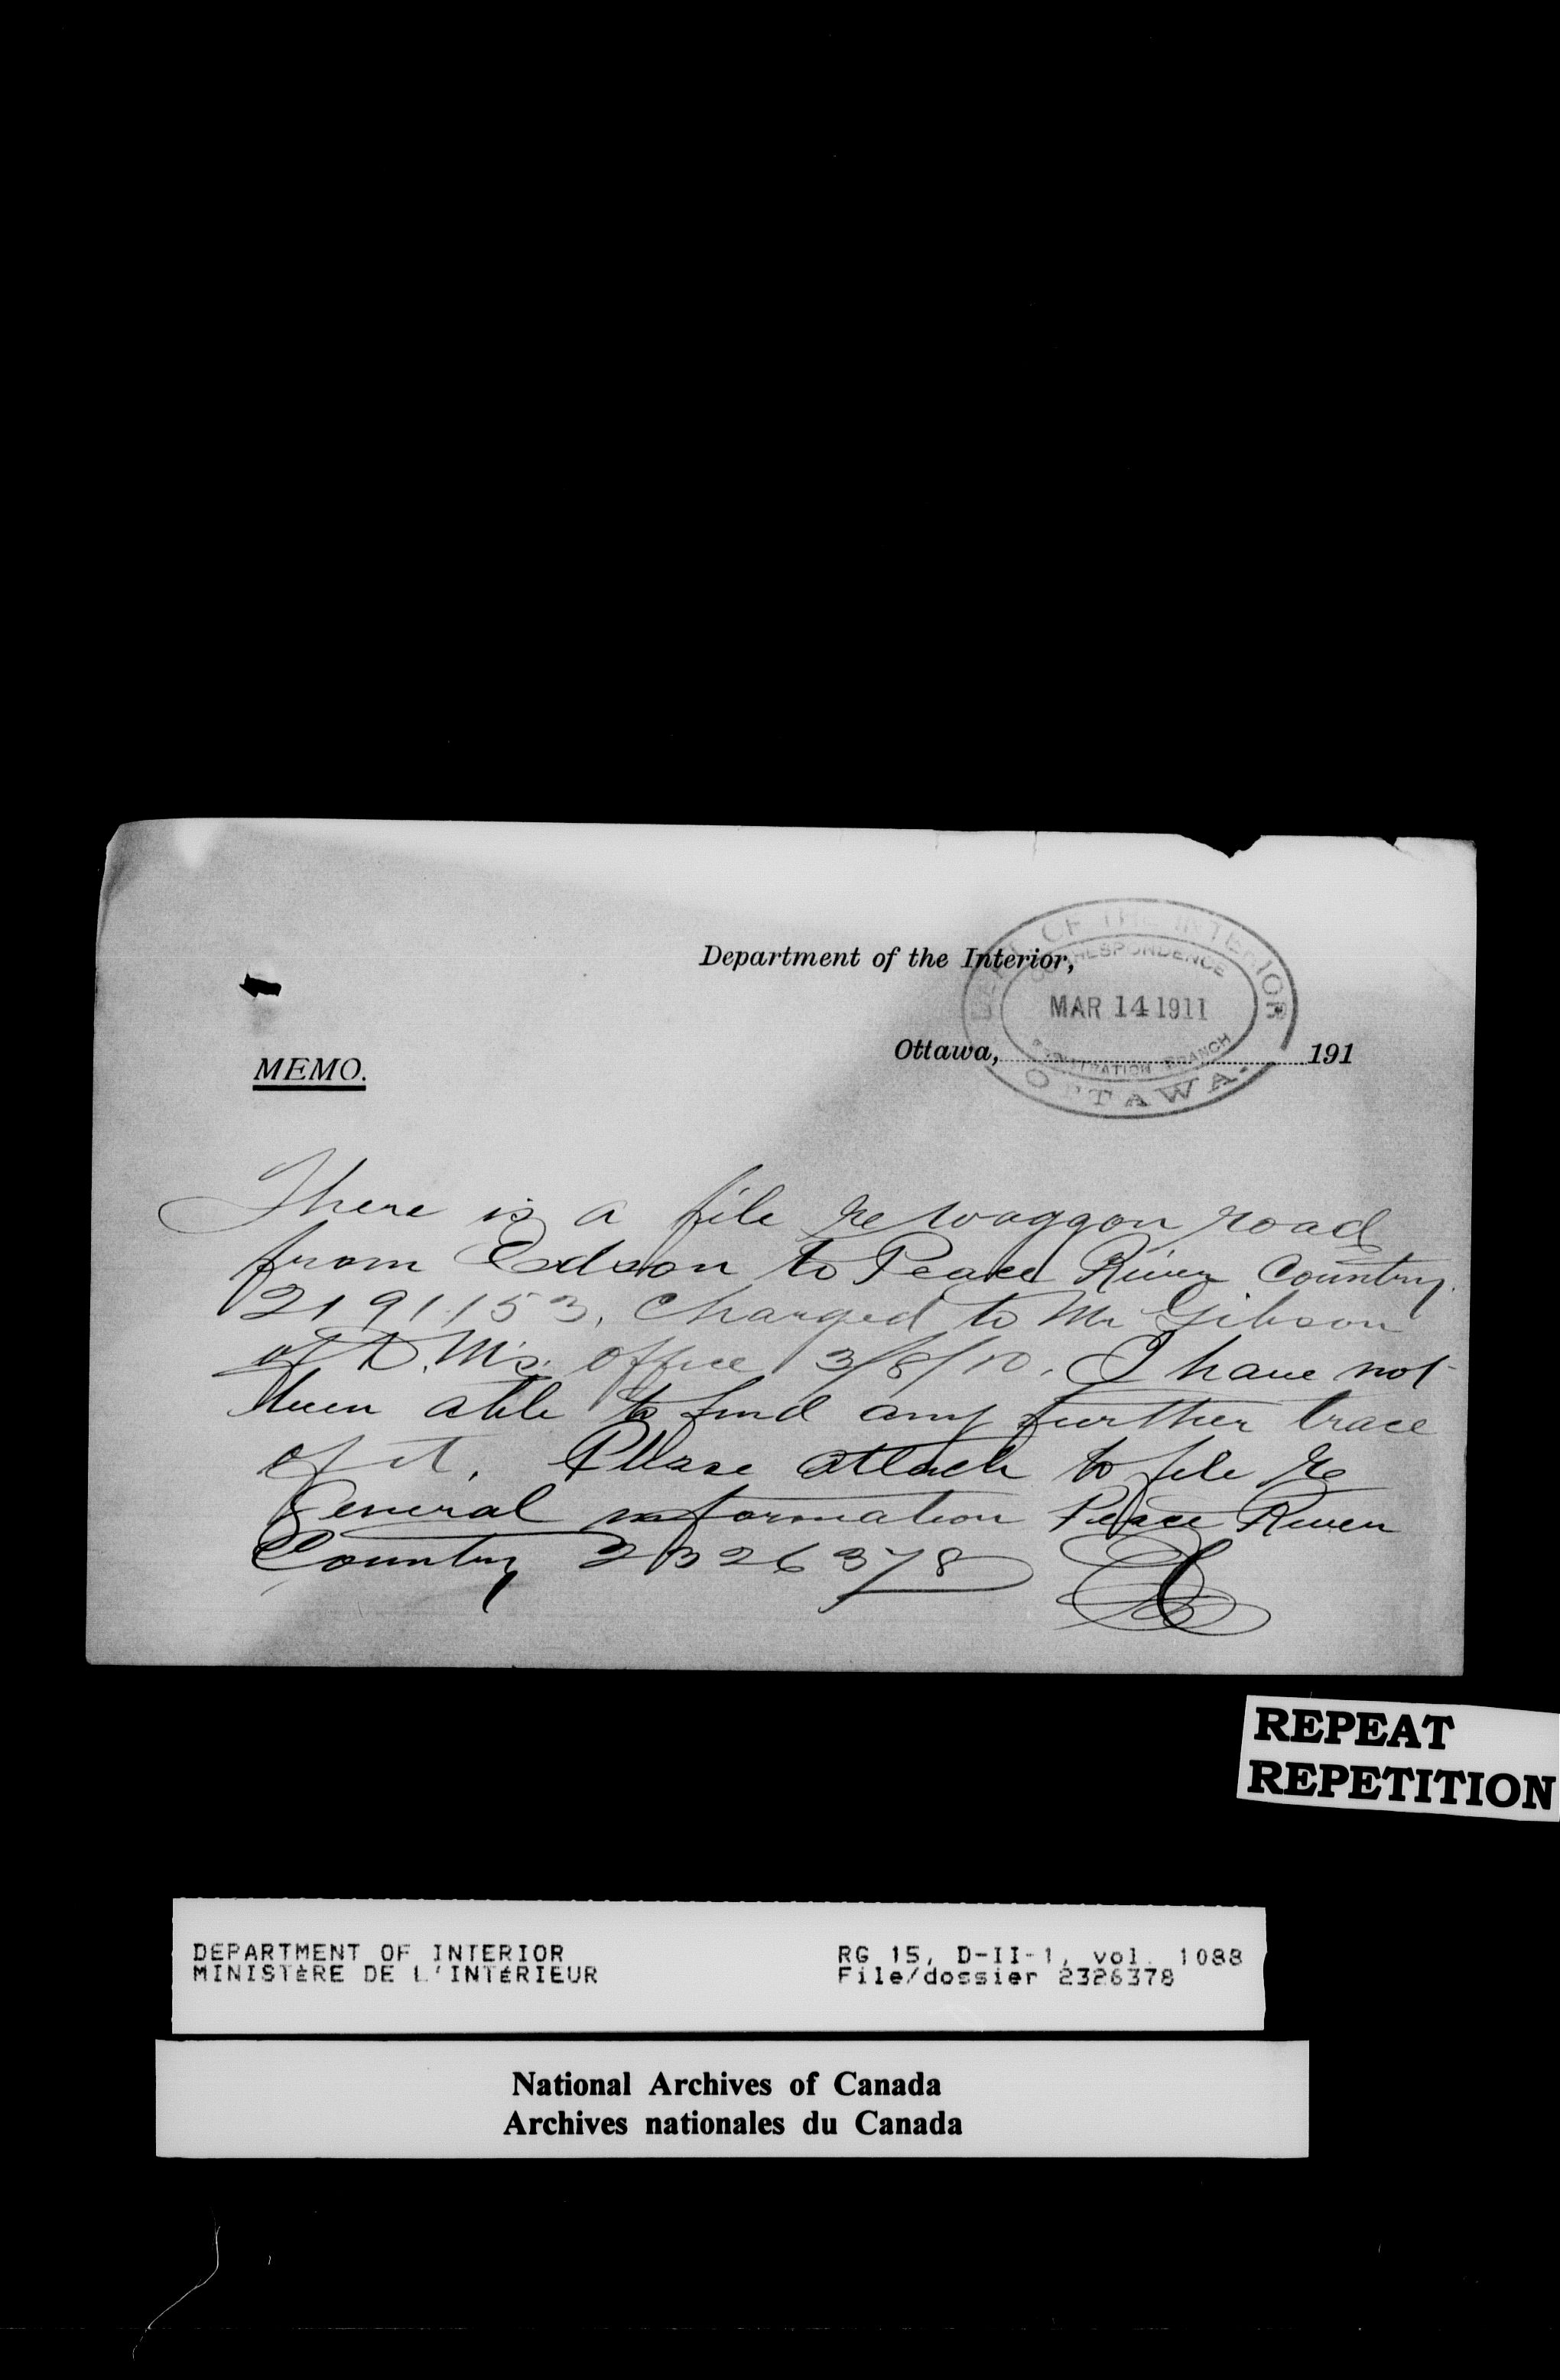 Department of the Interior,
DEPT. OF THE INTERIOR
CORRESPONDENCE
MAR 14 1911
REGISTRATION BRANCH
OTTAWA.
Ottawa, 191
MEMO.
There is a file re waggon road
from Edson to Peace River Country.
2191153. Charged to Mr Gibson
of D.M's. Office 3/8/10. I have not
been able to find any further trace
of it. Please attach to file re
General information Peace River
Country 2326378
REPEAT
REPETITION
DEPARTMENT OF INTERIOR
MINISTÈRE DE L'INTÉRIEUR
RG 15, D-II-1, vol. 1088
File/dossier 2326378
National Archives of Canada
Archives nationales du Canada